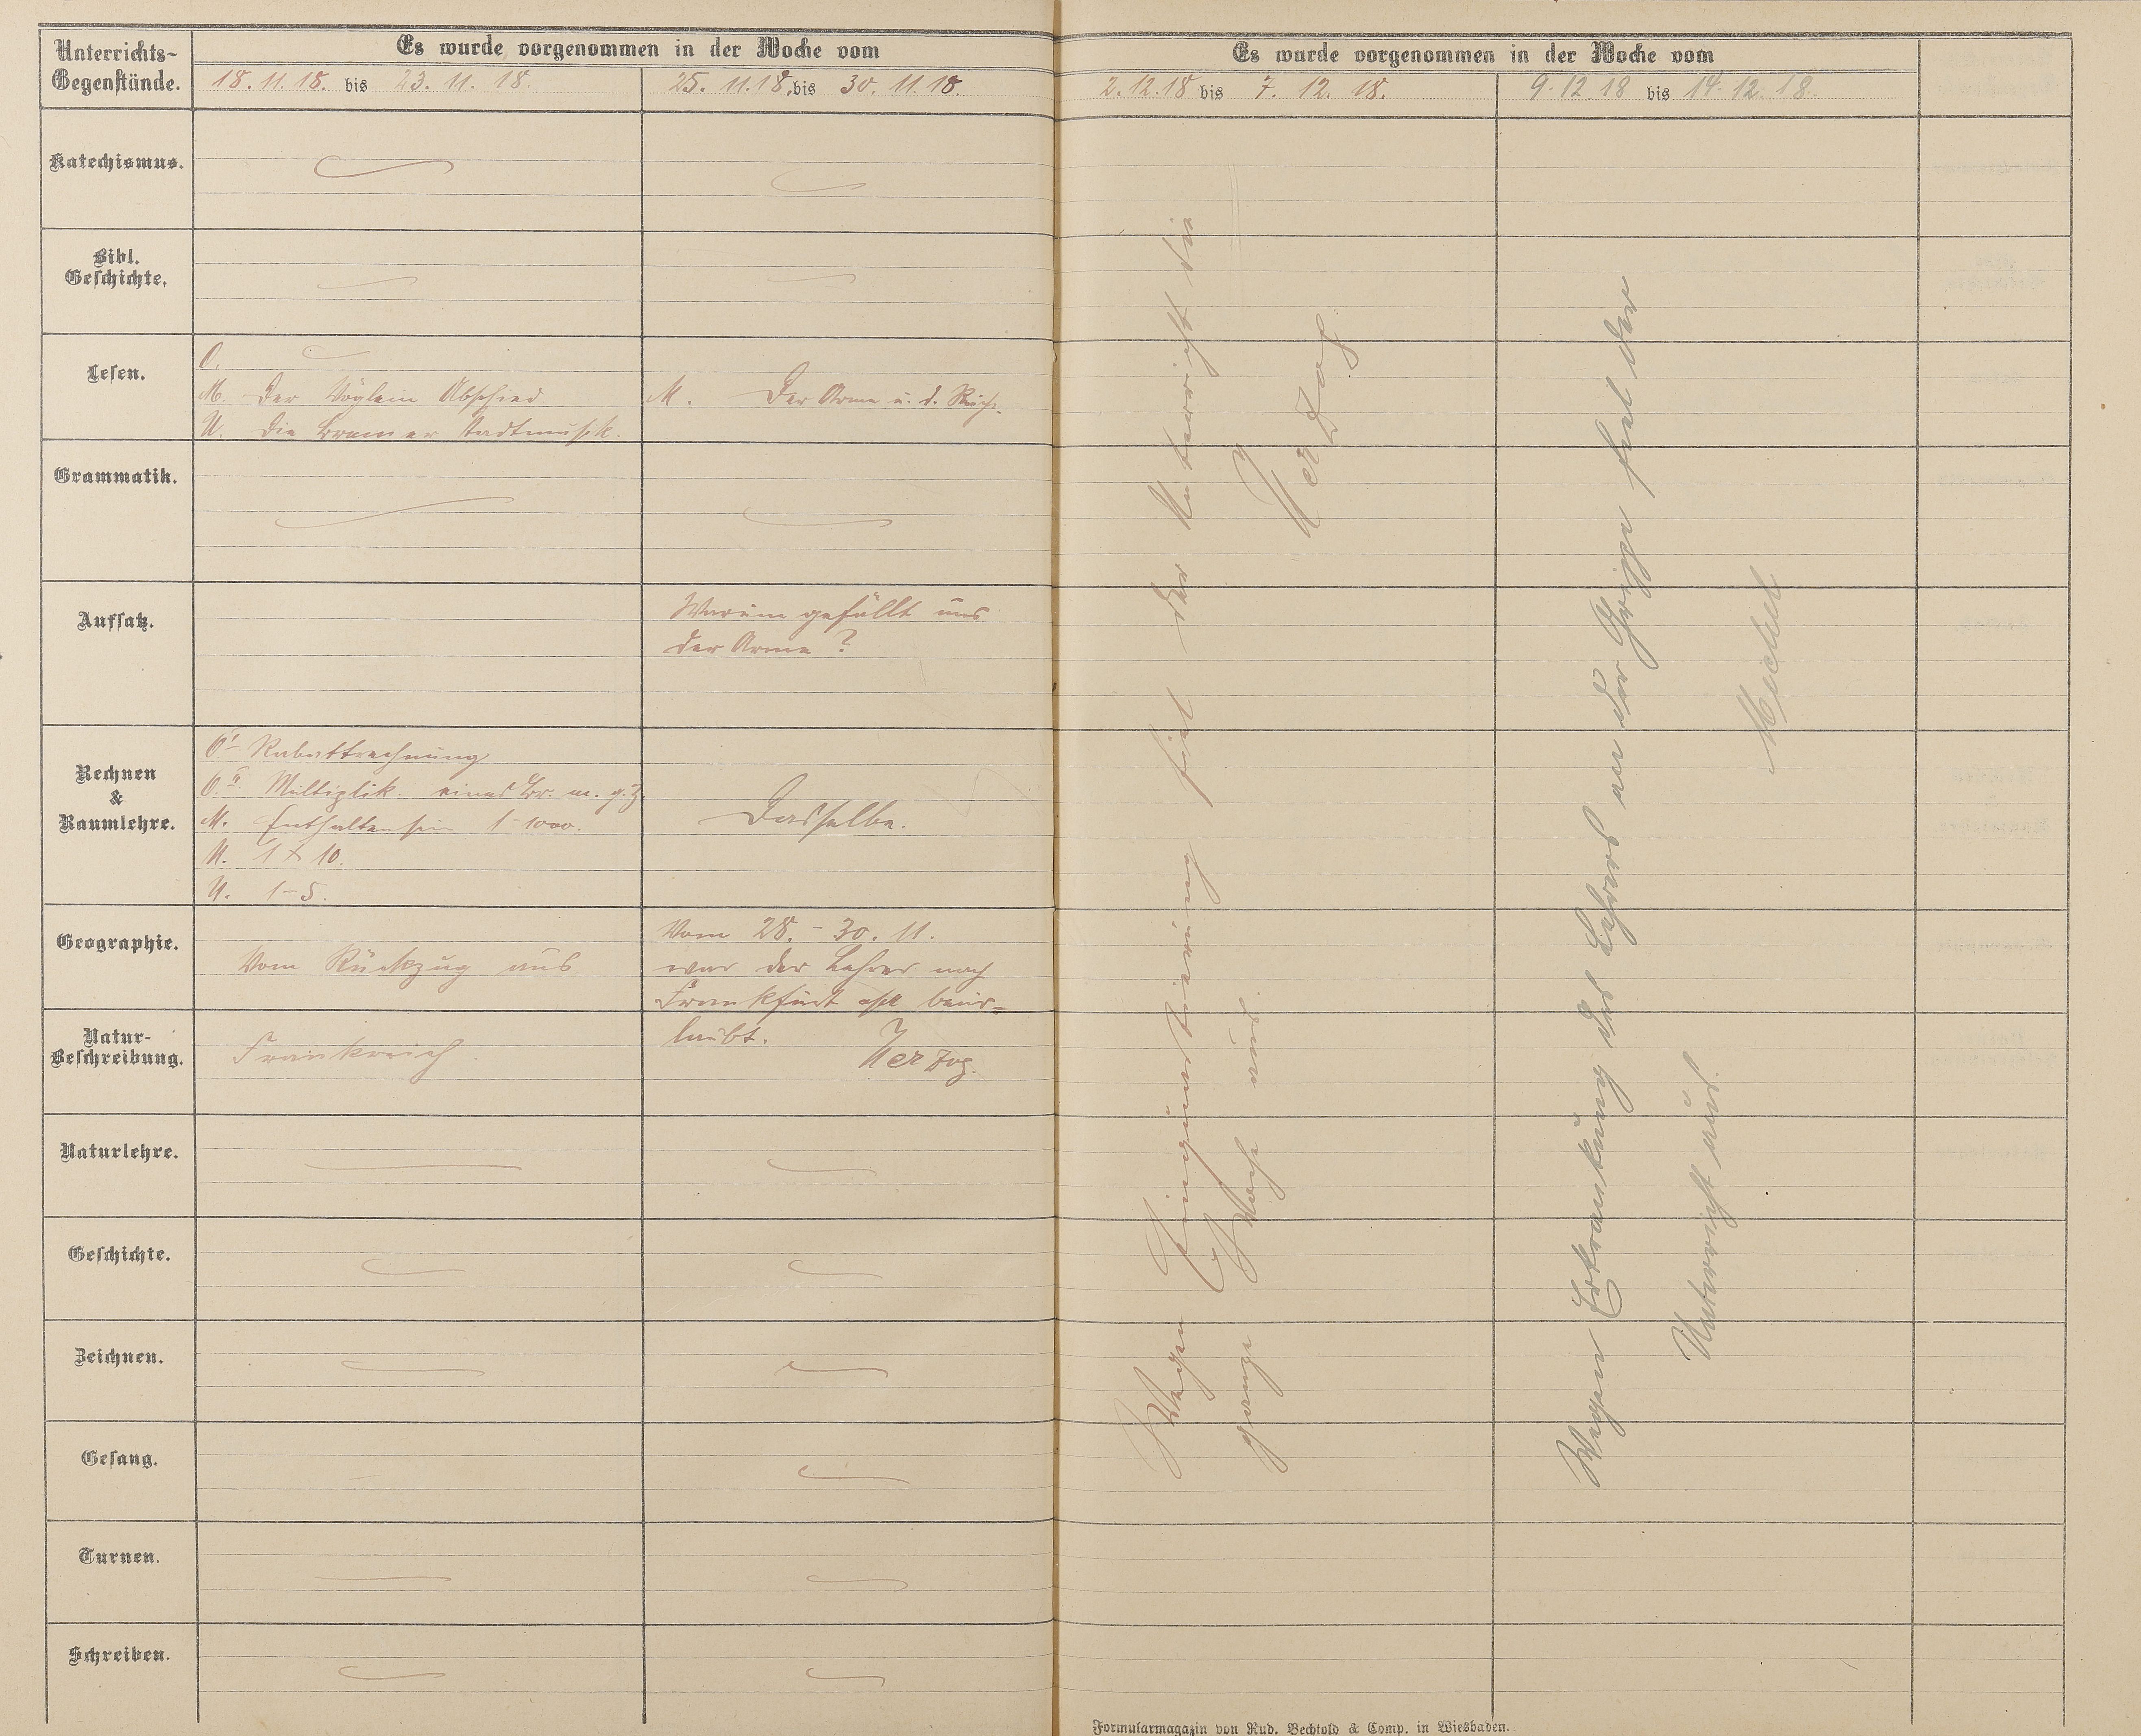 Unterrichts-
Gegenstände.
Es wurde vorgenommen in der Woche vom
18. 11. 18. bis 23. 11. 18.
25. 11. 18. bis 30. 11. 18.
Es wurde vorgenommen in der Woche vom
2. 12. 18 bis 7. 12. 18.
9. 12. 18 bis 14. 12. 18.
Katechismus.
Bibl.
Geschichte.
Lesen.
O.
M. Der Vöglein Abschied
U. Die Bremer Stadtmusik.
M. Der Arme u. d. Reiche.
Grammatik.
Aufsatz.
Warum gefällt uns
der Arme?
Rechnen
&
Raumlehre.
O. I Rabattrechnung
O. II. Multiplik. eines Br. m. g. Z.
M. Enthaltensein 1–1000.
U. 1 x 10.
U. 1–5.
Dasselbe.
Geographie.
Vom Rückzug aus
Vom 28. – 30. 11.
war der Lehrer nach
Frankfurt beur=
Natur-
Beschreibung.
Frankreich
laubt. Herzog.
Naturlehre.
Geschichte.
Zeichnen.
Gesang.
Turnen.
Schreiben.
Wegen Einquartierung fiel der Unterricht die
ganze Woche aus.
Herzog
Wegen Erkrankung des Lehrers an der Grippe fiel der
Unterricht aus.
Michel
Formularmagazin von Rud. Bechtold & Comp. in Wiesbaden.